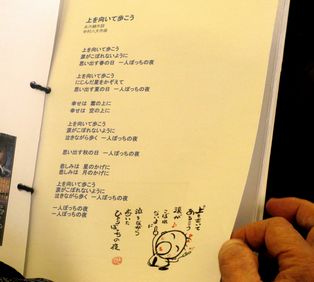 上を向いて歩こう
永六輔作詞
中村八大作曲
上を向いて歩こう
涙がこぼれないように
思い出す春の日 一人ぼっちの夜
上を向いて歩こう
にじんだ星をかぞえて
思い出す夏の日 一人ぼっちの夜
幸せは 雲の上に
幸せは 空の上に
上を向いて歩こう
涙がこぼれないように
泣きながら歩く 一人ぼっちの夜
思い出す秋の日 一人ぼっちの夜
悲しみは 星のかげに
悲しみは 月のかげに
上を向いて歩こう
涙がこぼれないように
泣きながら歩く 一人ぼっちの夜
一人ぼっちの夜
一人ぼっちの夜
上を向いて
あるこう
涙が
こぼれ
ないように
泣きながら
あるいた
ひとりぼっち
の夜